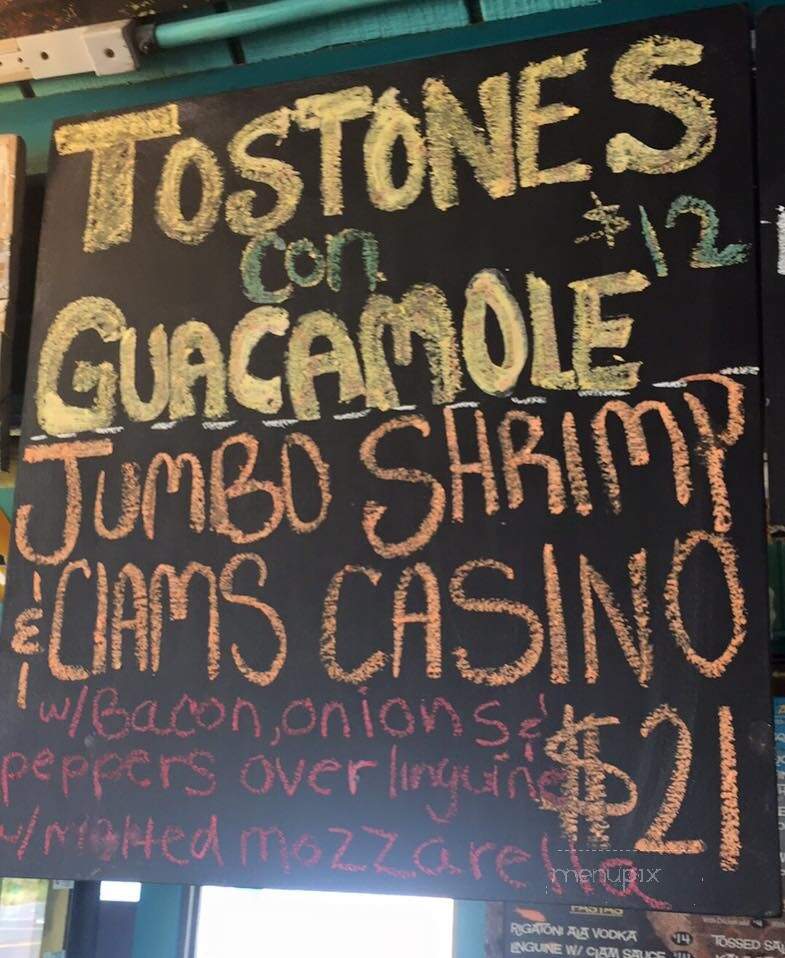 TOSTONES
con $12
GUACAMOLE
JUMBO SHRIMP
& ClAMS CASINO
w/Bacon, onions &
peppers over linguine $21
w/Melted mozzarella
menupix
PASTAS
RIGATONI ALA VODKA $14
LINGUINE W/ CLAM SAUCE
TOSSED SAL